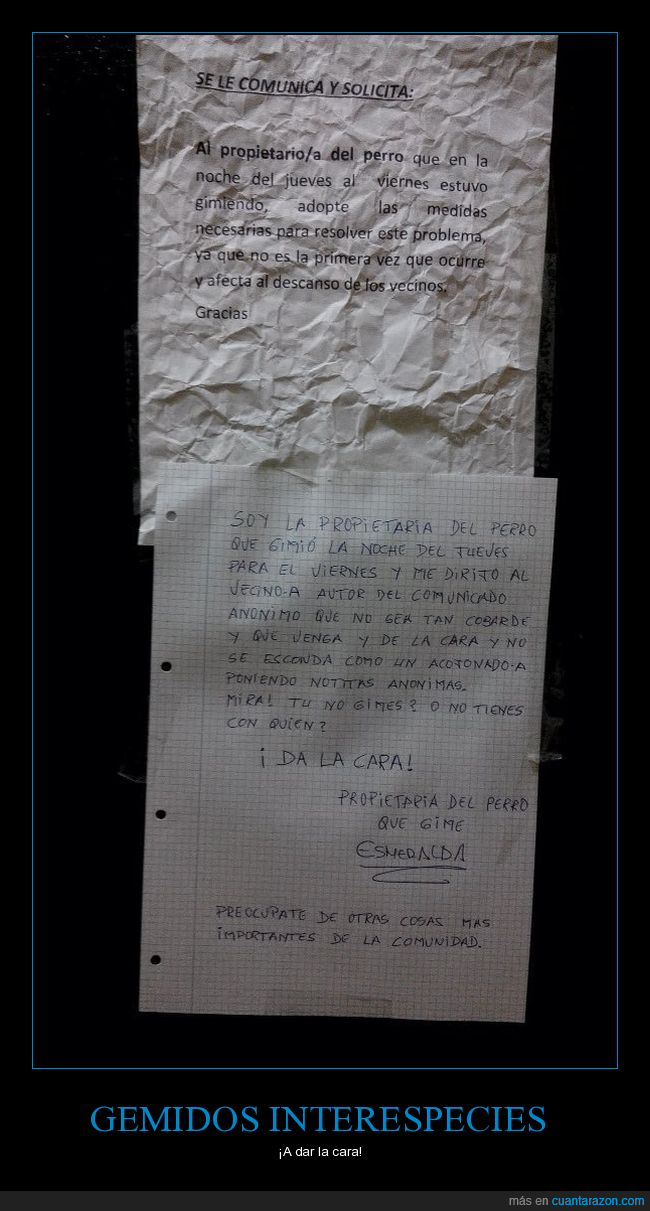 SE LE COMUNICA Y SOLICITA:
Al propietario/a del perro que en la
noche del jueves al viernes estuvo
gimiendo, adopte las medidas
necesarias para resolver este problema,
ya que no es la primera vez que ocurre
y afecta al descanso de los vecinos.
Gracias
SOY LA PROPIETARIA DEL PERRO
QUE GIMIÓ LA NOCHE DEL JUEVES
PARA EL VIERNES Y ME DIRIJO AL
VECINO-A AUTOR DEL COMUNICADO
ANONIMO QUE NO SEA TAN COBARDE
Y QUE VENGA Y DE LA CARA Y NO
SE ESCONDA COMO UN ACOJONADO-A
PONIENDO NOTITAS ANONIMAS.
MIRA! TU NO GIMES? O NO TIENES
CON QUIEN?
¡DA LA CARA!
PROPIETARIA DEL PERRO
QUE GIME
ESMERALDA
PREOCUPATE DE OTRAS COSAS MAS
IMPORTANTES DE LA COMUNIDAD.
GEMIDOS INTERESPECIES
¡A dar la cara!
más en cuantarazon.com